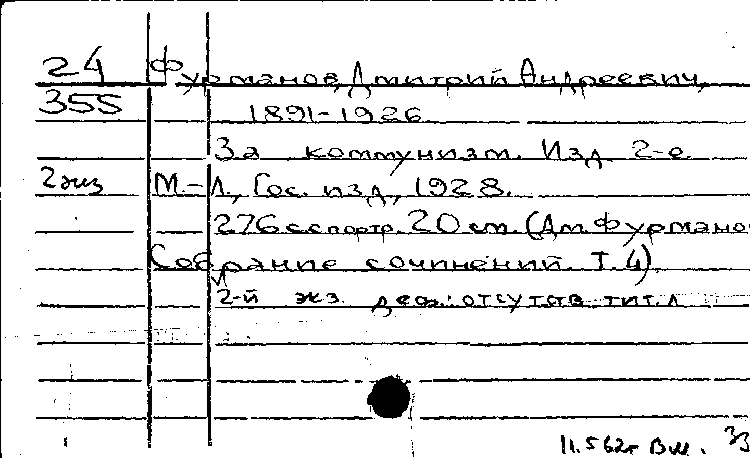 24 Фурманов, Дмитрий Андреевич,
355 1891-1926
За коммунизм. Изд. 2-е.
2 экз М.-Л., Гос. изд., 1928.
276 с с портр. 20 см. (Дм. Фурманов
Собрание сочинений. Т. 4)
2-й экз деф.: отсутств тит. л
11.562